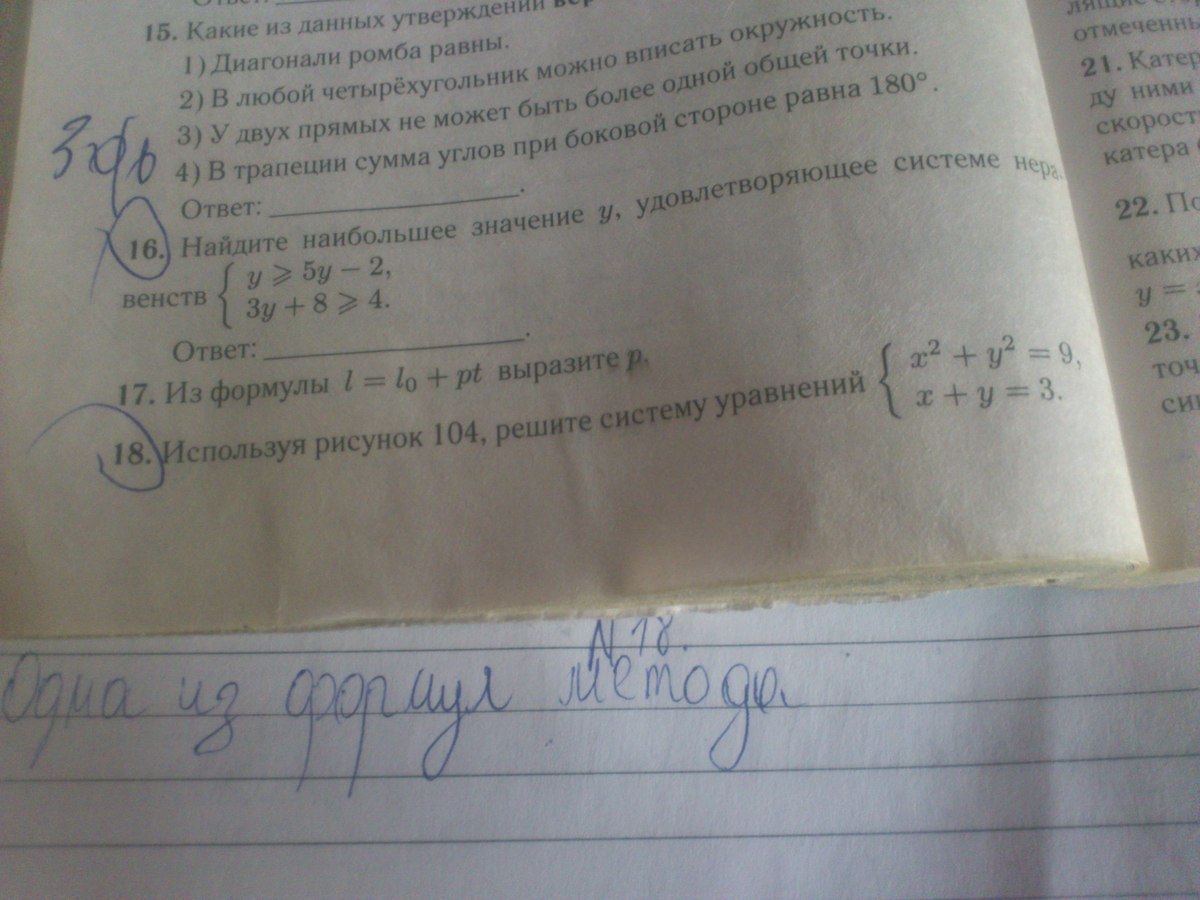 Ответ:
15. Какие из данных утверждений
1) Диагонали ромба равны.
2) В любой четырёхугольник можно вписать окружность.
3) У двух прямых не может быть более одной общей точки.
4) В трапеции сумма углов при боковой стороне равна 180°.
Ответ: .
16. Найдите наибольшее значение y, удовлетворяющее системе нера-
венств { y ⩾ 5y − 2,
3y + 8 ⩾ 4.
Ответ: .
17. Из формулы l = l₀ + pt выразите p.
18. Используя рисунок 104, решите систему уравнений { x² + y² = 9,
x + y = 3.
отмеченны
21. Катер
ду ними
скорост
катера
22. По
каких
y =
23.
точ
син
N 18.
Одна из формул метода